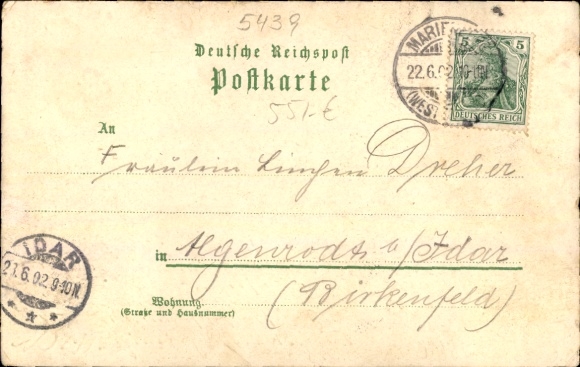 5439
Deutsche Reichspost
Postkarte
55,-€
MARIE
22.6.02
(WEST
5 5
DEUTSCHES REICH
An
Fräulein Linchen Dreher
in Algenrodt b/Idar
(Birkenfeld)
Wohnung
(Straße und Hausnummer)
IDAR
21.6.02.9-10N.